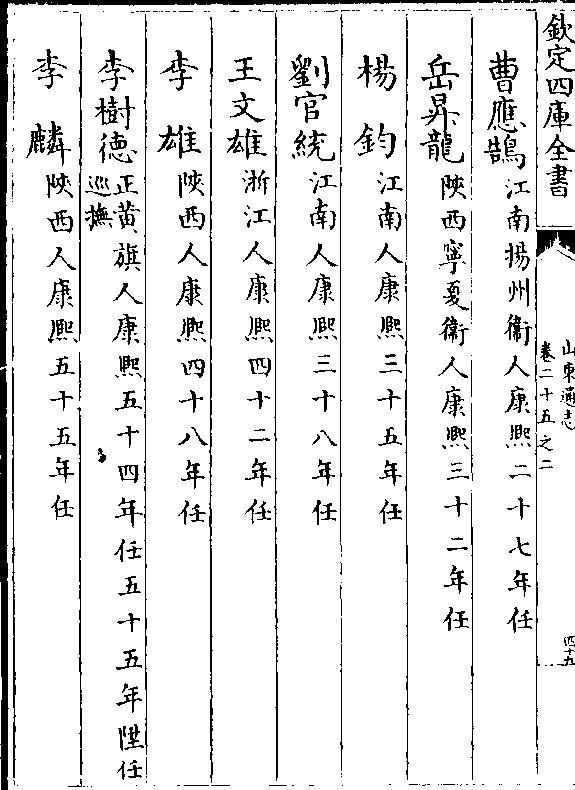 欽定四庫全書
山東通志
卷二十五之二
四十五
曹應鵠江南揚州衞人康熙二十七年任
岳昇龍陜西寧夏衞人康熙三十二年任
楊鈞江南人康熙三十五年任
劉官統江南人康熙三十八年任
王文雄浙江人康熙四十二年任
李雄陜西人康熙四十八年任
李樹德正黄旗人康熙五十四年任五十五年陞任
巡撫
李麟陜西人康熙五十五年任